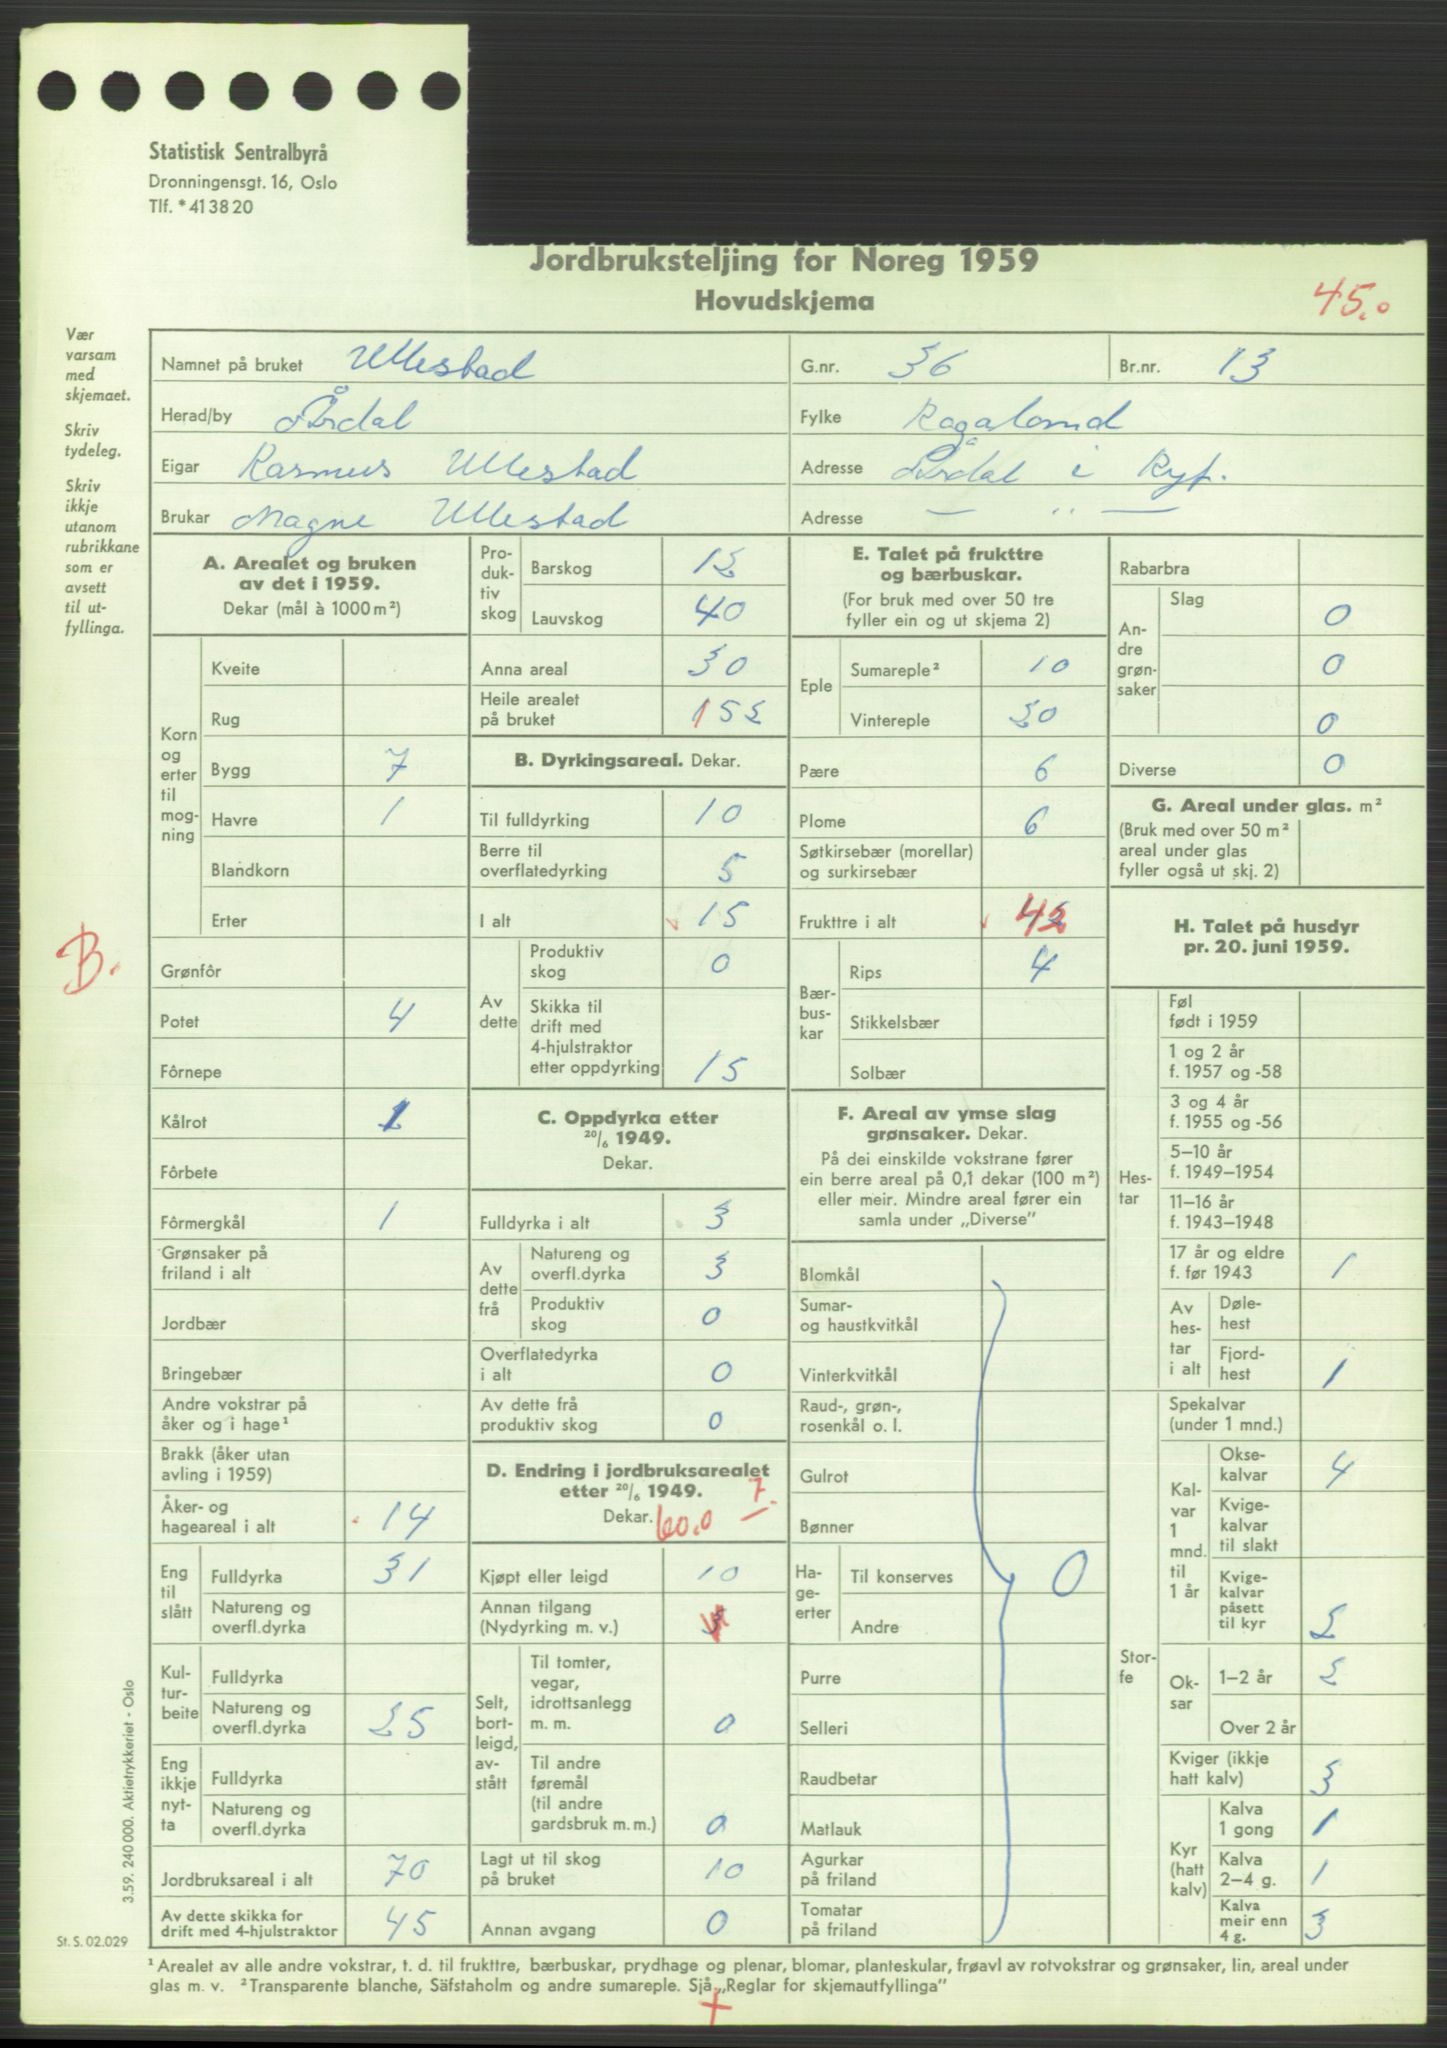 Statistisk Sentralbyrå
Dronningensgt. 16, Oslo
Tlf. *413820
Jordbruksteljing for Noreg 1959
Hovudskjema
45.0
Vær
varsam
med
skjemaet.
Skriv
tydeleg.
Skriv
ikkje
utanom
rubrikkane
som er
avsett
til ut-
fyllinga.
B.
Namnet på bruket Ullestad G.nr. 36 Br.nr. 13
Herad/by Årdal Fylke Rogaland
Eigar Rasmus Ullestad Adresse Årdal i Ryf.
Brukar Magne Ullestad Adresse — " —
A. Arealet og bruken
av det i 1959.
Dekar (mål à 1000 m²)
Korn
og
erter
til
mog-
ning
Kveite
Rug
Bygg 7
Havre 1
Blandkorn
Erter
Grønfôr
Potet 4
Fôrnepe
Kålrot 1
Fôrbete
Fôrmergkål 1
Grønsaker på
friland i alt
Jordbær
Bringebær
Andre vokstrar på
åker og i hage¹
Brakk (åker utan
avling i 1959)
Åker- og
hageareal i alt 14
Eng
til
slått
Fulldyrka 31
Natureng og
overfl.dyrka
Kul-
tur-
beite
Fulldyrka
Natureng og
overfl.dyrka 25
Eng
ikkje
nyt-
ta
Fulldyrka
Natureng og
overfl.dyrka
Jordbruksareal i alt 70
Av dette skikka for
drift med 4-hjulstraktor 45
Pro-
duk-
tiv
skog
Barskog 12
Lauvskog 40
Anna areal 30
Heile arealet
på bruket 152
B. Dyrkingsareal. Dekar.
Til fulldyrking 10
Berre til
overflatedyrking 5
I alt 15
Av
dette
Produktiv
skog 0
Skikka til
drift med
4-hjulstraktor
etter oppdyrking 15
C. Oppdyrka etter
20/6 1949.
Dekar.
Fulldyrka i alt 3
Av
dette
frå
Natureng og
overfl.dyrka 3
Produktiv
skog 0
Overflatedyrka
i alt 0
Av dette frå
produktiv skog 0
D. Endring i jordbruksarealet
etter 20/6 1949. 7.
Dekar. 60.0
Kjøpt eller leigd 10
Annan tilgang
(Nydyrking m. v.) 3
Selt,
bort-
leigd,
av-
stått
Til tomter,
vegar,
idrottsanlegg
m. m. 0
Til andre
føremål
(til andre
gardsbruk m.m.) 0
Lagt ut til skog
på bruket 10
Annan avgang 0
E. Talet på frukttre
og bærbuskar.
(For bruk med over 50 tre
fyller ein og ut skjema 2)
Eple
Sumareple² 10
Vintereple 20
Pære 6
Plome 6
Søtkirsebær (morellar)
og surkirsebær
Frukttre i alt 42
Bær-
bus-
kar
Rips 4
Stikkelsbær
Solbær
F. Areal av ymse slag
grønsaker. Dekar.
På dei einskilde vokstrane fører
ein berre areal på 0,1 dekar (100 m²)
eller meir. Mindre areal fører ein
samla under „Diverse”
Blomkål
Sumar-
og haustkvitkål
Vinterkvitkål
Raud-, grøn-,
rosenkål o. l.
Gulrot
Bønner
Ha-
ge-
erter
Til konserves 0
Andre
Purre
Selleri
Raudbetar
Matlauk
Agurkar
på friland
Tomatar
på friland
Rabarbra
An-
dre
grøn-
saker
Slag 0
0
0
Diverse 0
G. Areal under glas. m²
(Bruk med over 50 m²
areal under glas
fyller også ut skj. 2)
H. Talet på husdyr
pr. 20. juni 1959.
Hes-
tar
Føl
født i 1959
1 og 2 år
f. 1957 og -58
3 og 4 år
f. 1955 og -56
5–10 år
f. 1949–1954
11–16 år
f. 1943–1948
17 år og eldre
f. før 1943 1
Av
hes-
tar
i alt
Døle-
hest
Fjord-
hest 1
Stor-
fe
Spekalvar
(under 1 mnd.)
Kal-
var
1
mnd.
til
1 år
Okse-
kalvar 4
Kvige-
kalvar
til slakt
Kvige-
kalvar
påsett
til kyr 2
Ok-
sar
1–2 år 2
Over 2 år
Kviger (ikkje
hatt kalv) 3
Kyr
(hatt
kalv)
Kalva
1 gong 1
Kalva
2–4 g. 1
Kalva
meir enn
4 g. 3
3.59. 240000. Aktietrykkeriet - Oslo
St. S. 02.029
¹ Arealet av alle andre vokstrar, t. d. til frukttre, bærbuskar, prydhage og plenar, blomar, planteskular, frøavl av rotvokstrar og grønsaker, lin, areal under
glas m. v. ² Transparente blanche, Säfstaholm og andre sumareple. Sjå „Reglar for skjemautfyllinga”